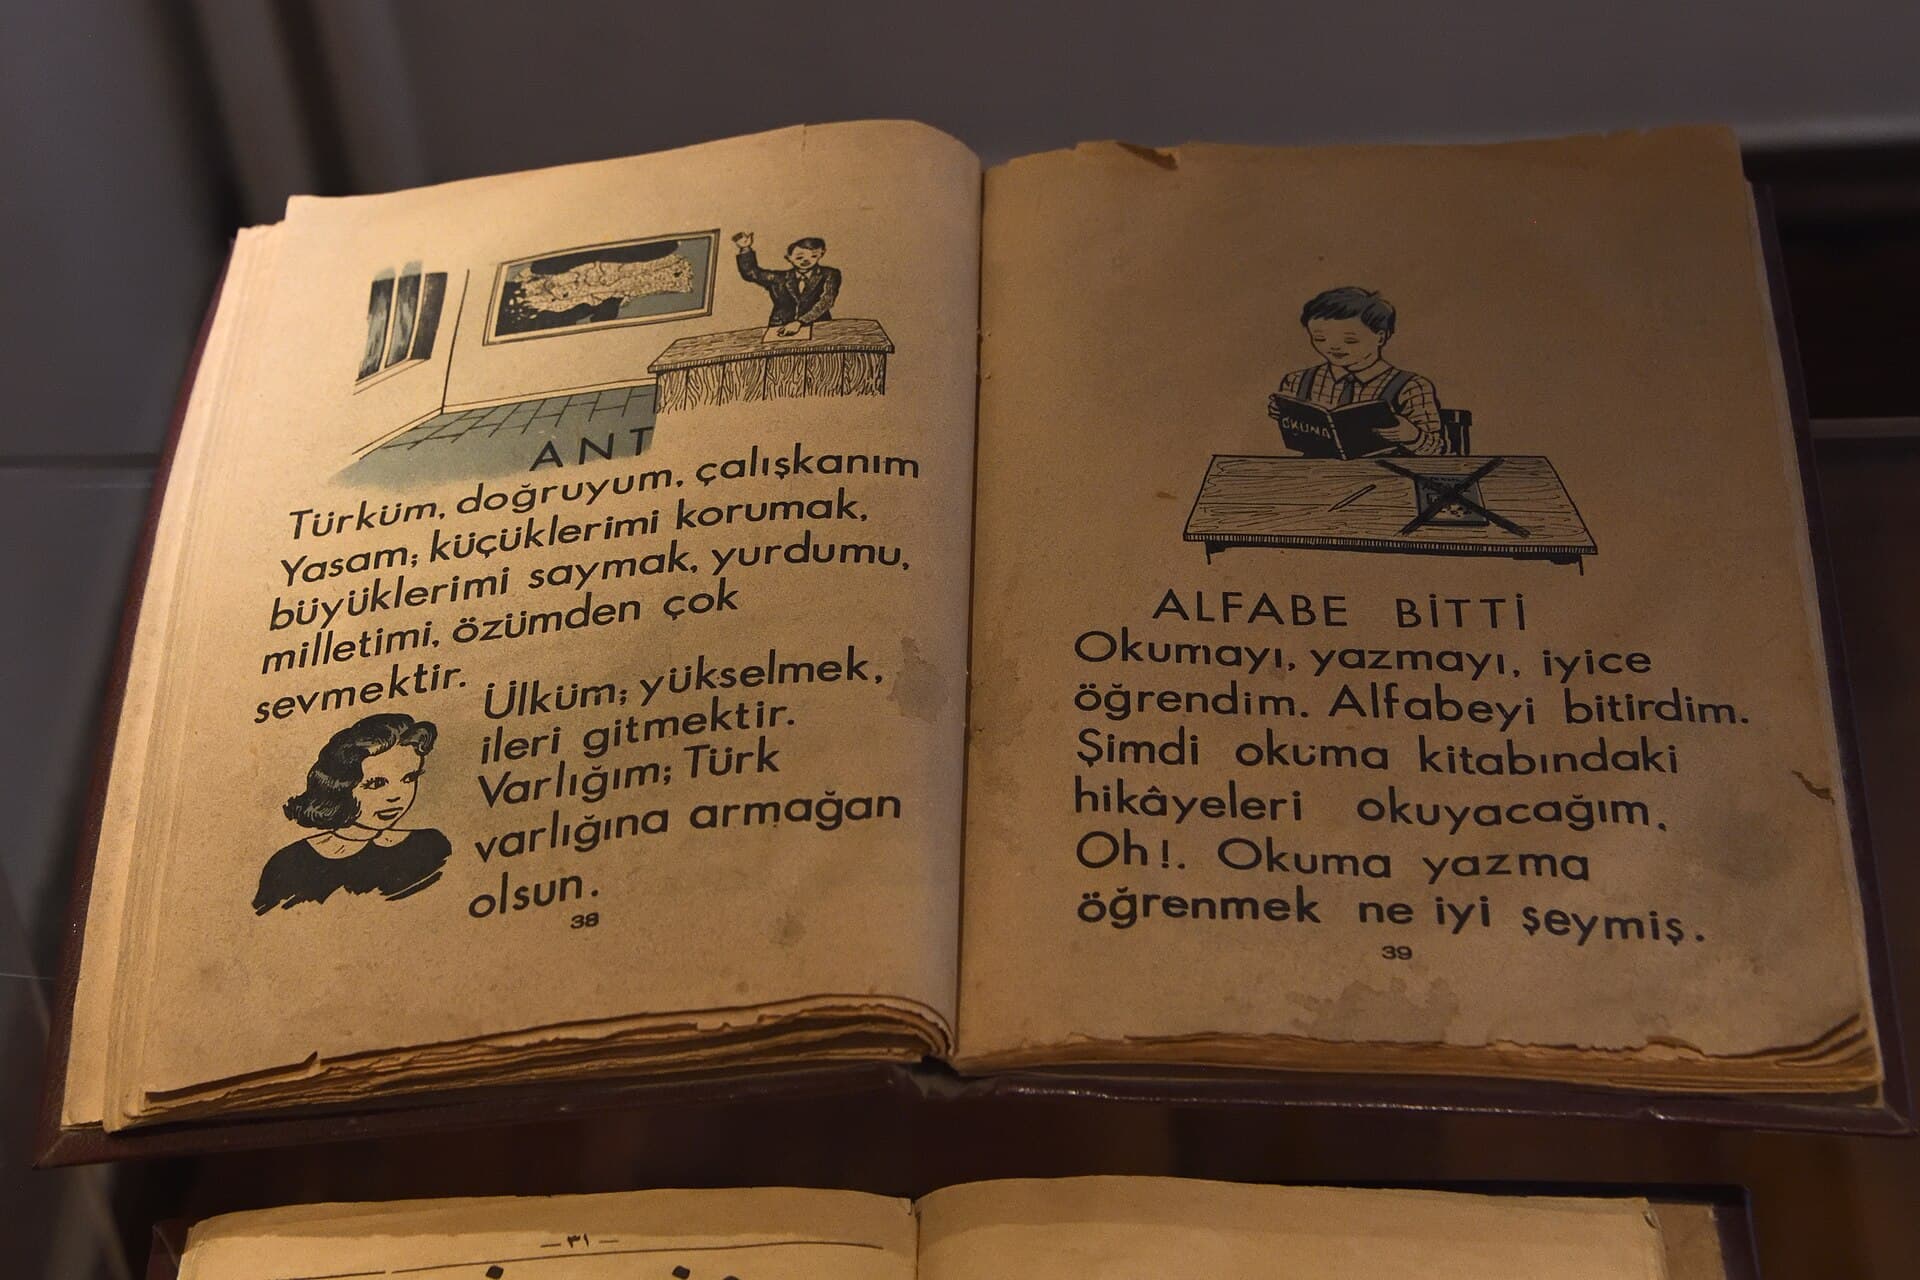 ANT
Türküm, doğruyum, çalışkanım
Yasam; küçüklerimi korumak,
büyüklerimi saymak, yurdumu,
milletimi, özümden çok
sevmektir.
Ülküm; yükselmek,
ileri gitmektir.
Varlığım; Türk
varlığına armağan
olsun.
38
OKUMA
ALFABE BİTTİ
Okumayı, yazmayı, iyice
öğrendim. Alfabeyi bitirdim.
Şimdi okuma kitabındaki
hikâyeleri okuyacağım.
Oh!. Okuma yazma
öğrenmek ne iyi şeymiş.
39
— ٣١ —